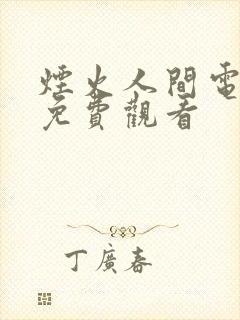 煙火人間電
免費觀看
丁廣春